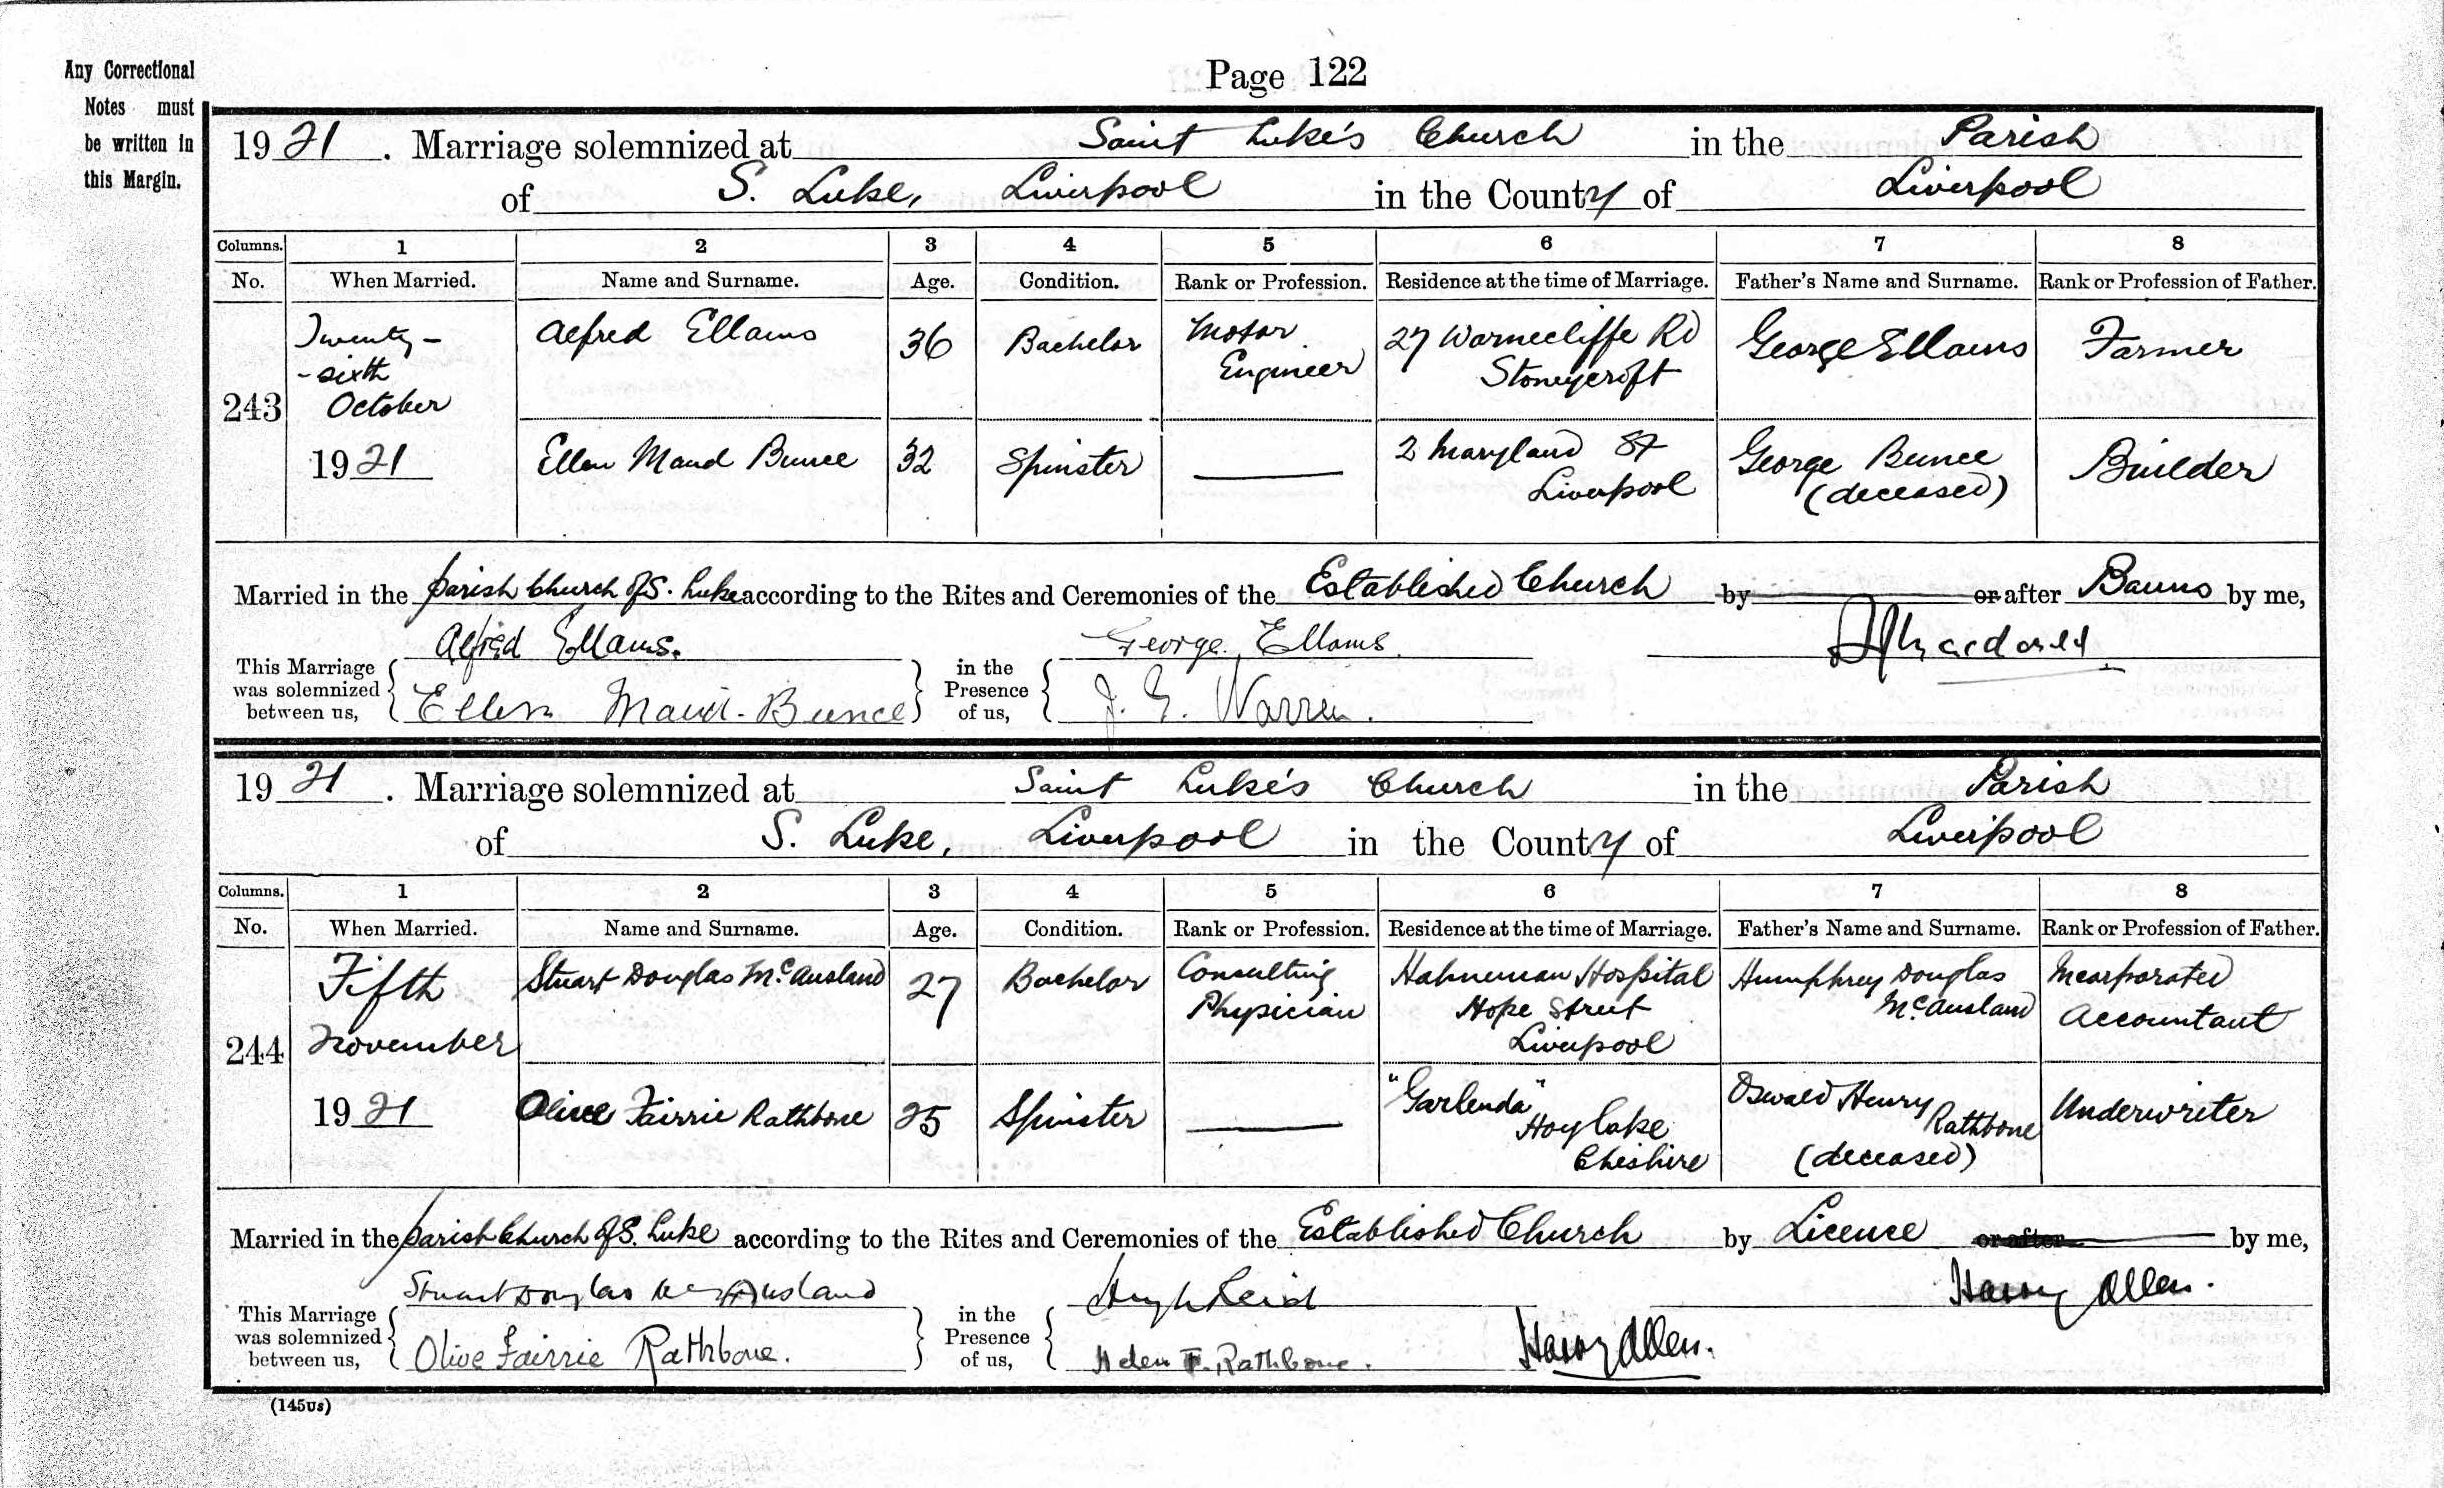 Page 122
Any Correctional
Notes must
be written in
this Margin.
1921. Marriage solemnized at Saint Luke's Church in the Parish
of S. Luke, Liverpool in the County of Liverpool
Columns. 1 2 3 4 5 6 7 8
No. When Married. Name and Surname. Age. Condition. Rank or Profession. Residence at the time of Marriage. Father's Name and Surname. Rank or Profession of Father.
Twenty- Alfred Ellams 36 Bachelor Motor 27 Warnecliffe Rd George Ellams Farmer
-sixth Engineer Stoneycroft
243 October
1921 Ellen Maud Bunce 32 Spinster 2 Maryland St George Bunce Builder
Liverpool (deceased)
Married in the parish Church of S. Luke according to the Rites and Ceremonies of the Established Church by or after Banns by me,
Alfred Ellams. George Ellams.
This Marriage was solemnized between us, in the Presence of us,
Ellen Maud Bunce J. E. Warren.
1921. Marriage solemnized at Saint Luke's Church in the Parish
of S. Luke, Liverpool in the County of Liverpool
Columns. 1 2 3 4 5 6 7 8
No. When Married. Name and Surname. Age. Condition. Rank or Profession. Residence at the time of Marriage. Father's Name and Surname. Rank or Profession of Father.
Fifth Stuart Douglas McAusland 27 Bachelor Consulting Hahneman Hospital Humphrey Douglas Incorporated
Physician Hope Street McAusland Accountant
244 November Liverpool
1921 Olive Fairrie Rathbone 25 Spinster "Garlenda" Oswald Henry Underwriter
Hoylake Rathbone
Cheshire (deceased)
Married in the parish Church of S. Luke according to the Rites and Ceremonies of the Established Church by Licence or after by me,
Stuart Douglas McAusland Hugh Reid Harry Allen.
This Marriage was solemnized between us, in the Presence of us,
Olive Fairrie Rathbone. Helen F. Rathbone. Harry Allen.
(145us)